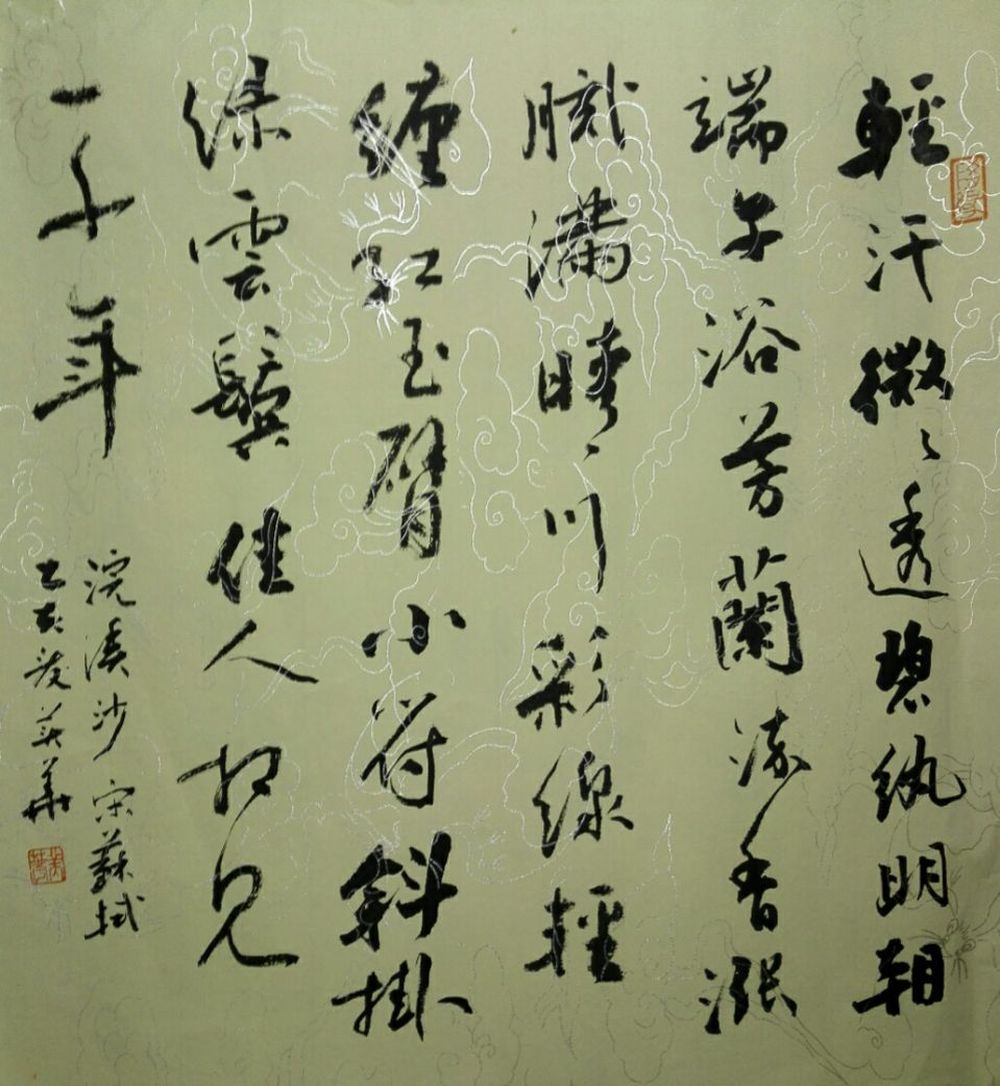 輕汗微々透碧紈明朝
端午浴芳蘭流香漲
膩滿晴川彩線輕
纏紅玉臂小符斜掛
綠雲鬟佳人相見
一千年
浣溪沙 宋蘇軾
己亥英華